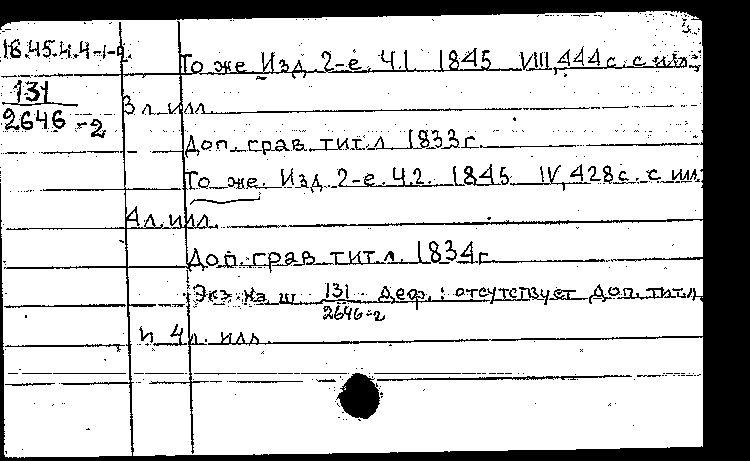 18.45.4.4-1-2
То же. Изд. 2-е. Ч.1. 1845. VIII, 444 с. с илл.;
131
2646-2
3 л. илл.
Доп. грав. тит. л. 1833 г.
То же. Изд. 2-е. Ч.2. 1845. IV, 428 с. с илл.;
4 л. илл.
Доп. грав. тит. л. 1834 г.
Экз. на ш. 131 Деф.: отсутствует доп. тит. л.
2646-2
и 4 л. илл.